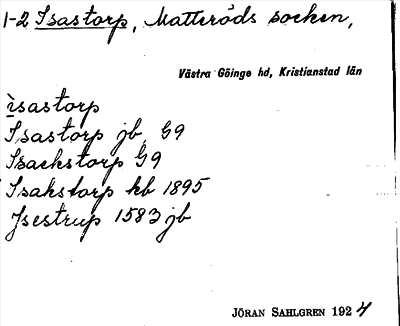 1-2 Isastorp, Matteröds socken,
Västra Göinge hd, Kristianstad län
ìsastorp
Isastorp jb, G9
Isackstorp G9
Isakstorp kb 1895
Jsestrup 1583 jb
JÖRAN SAHLGREN 1924